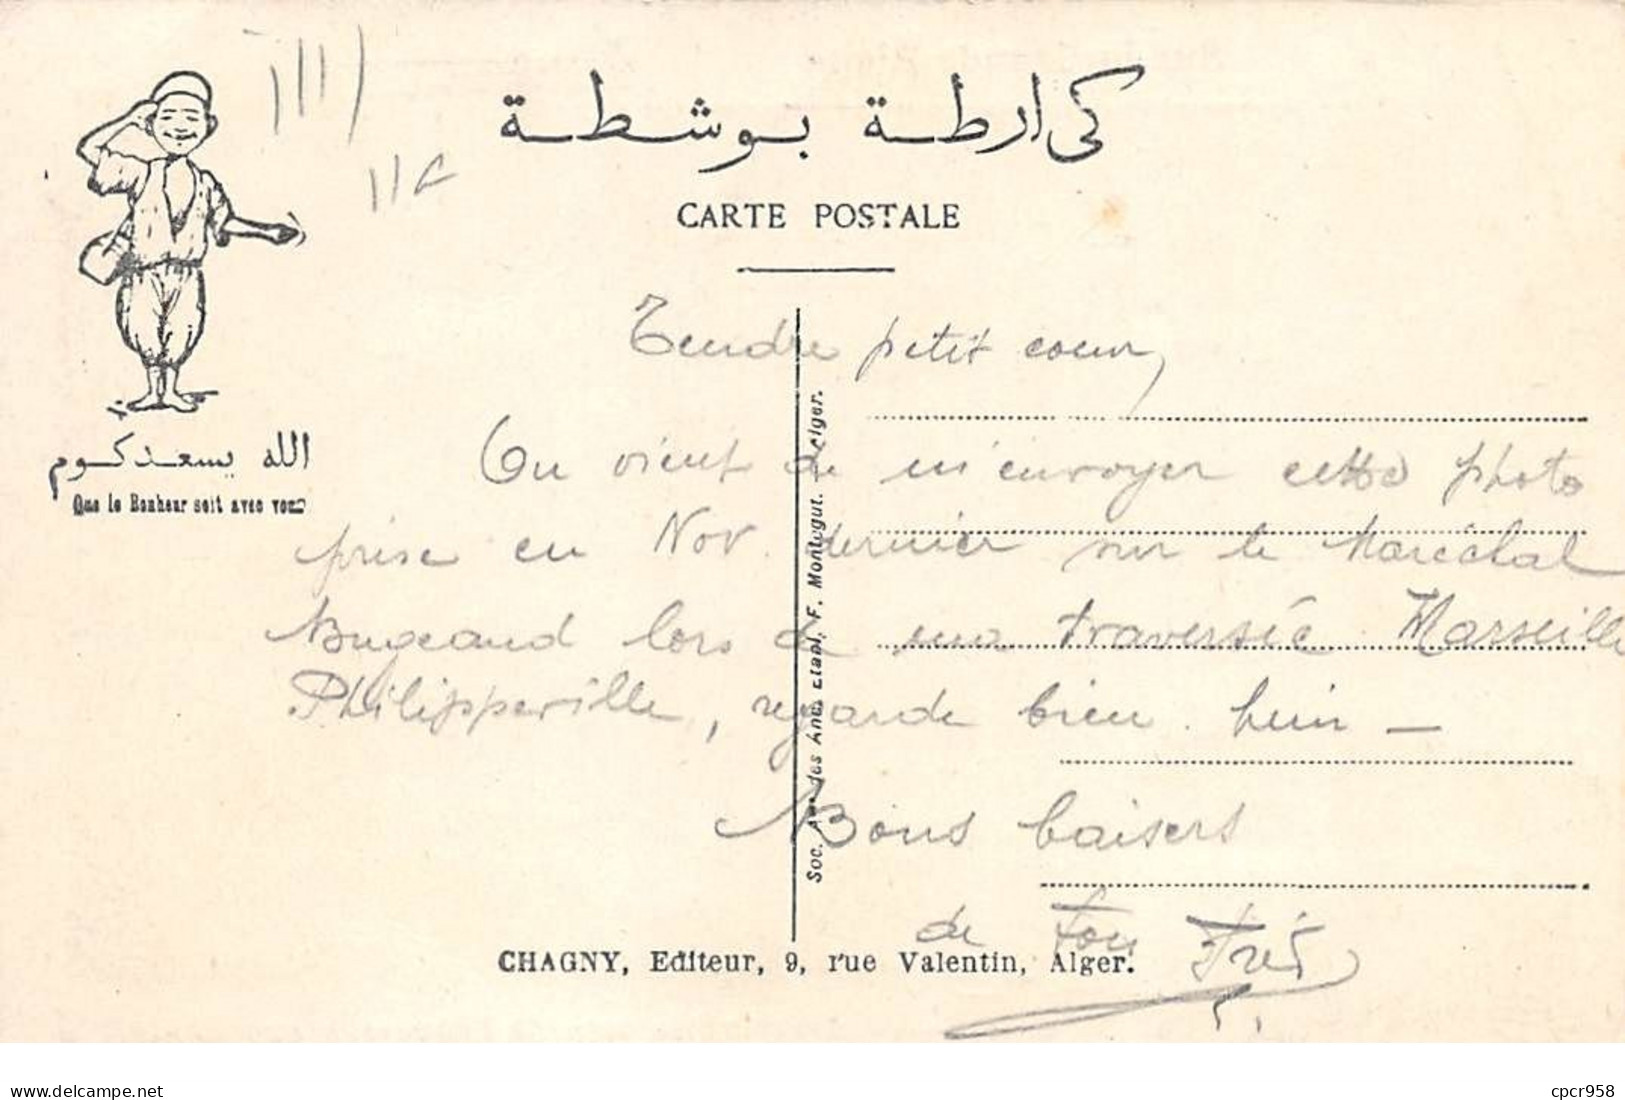 كارطة بوشطة
CARTE POSTALE
الله يسعدكوم
Que le Bonheur soit avec vous
Tendre petit coeur,
On vient de m'envoyer cette photo
prise en Nov. dernier sur le Maréchal
Bugeaud lors de ma traversée Marseille
Philippeville, regarde bien. hein —
Bons baisers
de ton Fred
Soc. des Anc. Etabl. F. Montégut. Alger.
CHAGNY, Editeur, 9, rue Valentin, Alger.
www.delcampe.net
cpcr958